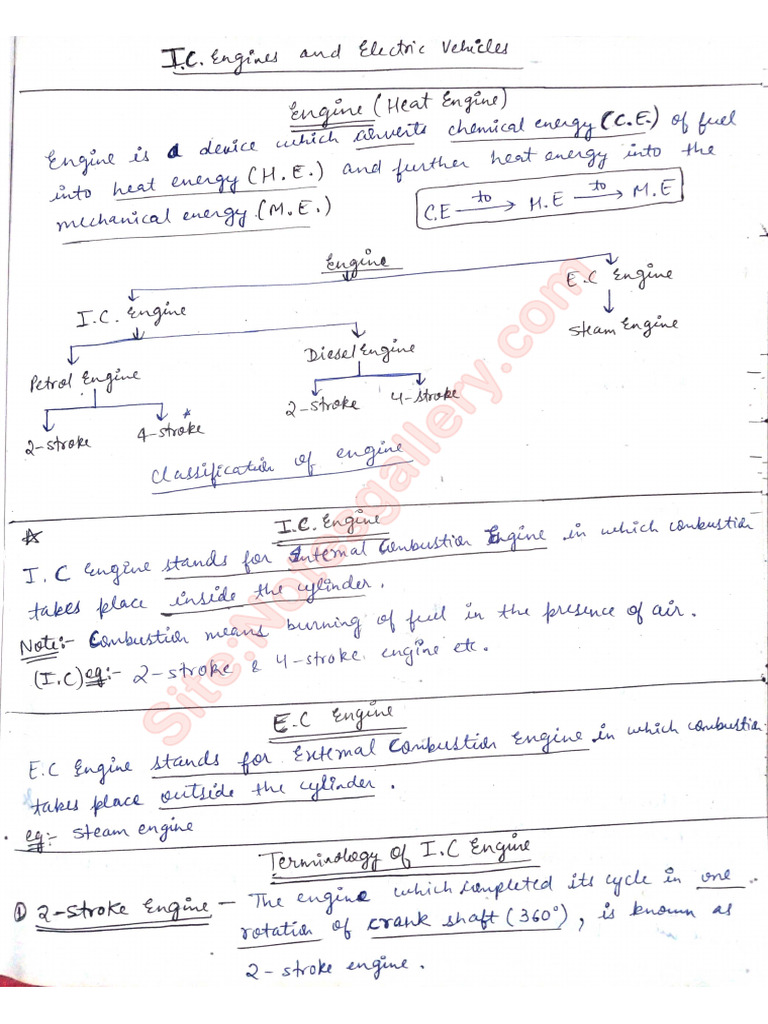 I.C. Engines and Electric Vehicles
Engine (Heat Engine)
Engine is a device which converts chemical energy (C.E.) of fuel
into heat energy (H.E.) and further heat energy into the
mechanical energy (M.E.)
C.E to → H.E to → M.E
Engine
I.C. Engine
E.C Engine
Steam Engine
Petrol Engine
Diesel Engine
2-stroke
4-stroke
2-stroke
4-stroke
Classification of engine
I.C. Engine
I.C Engine stands for Internal Combustion Engine in which combustion
takes place inside the cylinder.
Note:- Combustion means burning of fuel in the presence of air.
(I.C) eg:- 2-stroke & 4-stroke engine etc.
E.C Engine
E.C Engine stands for External Combustion Engine in which combustion
takes place outside the cylinder.
eg:- Steam engine
Terminology of I.C Engine
① 2-Stroke Engine - The engine which completed its cycle in one
rotation of crank shaft (360°), is known as
2-stroke engine.
Site:Notesgallery.com